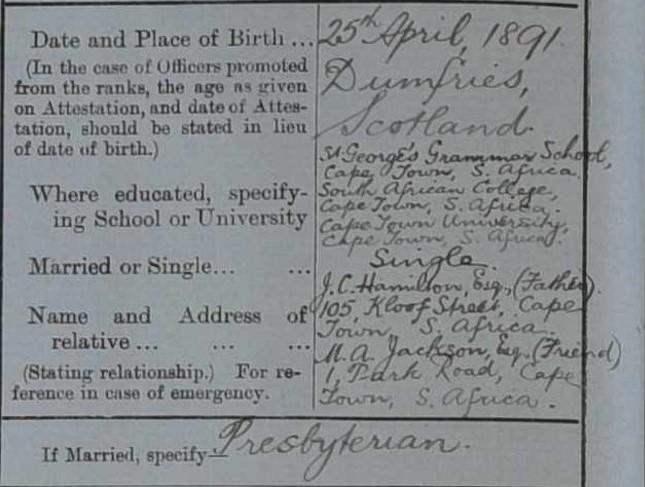 Date and Place of Birth ... 25th April, 1891.
(In the case of Officers promoted
from the ranks, the age as given
on Attestation, and date of Attes-
tation, should be stated in lieu
of date of birth.)
Dumfries,
Scotland.
Where educated, specify-
ing School or University
St. George's Grammar School,
Cape Town, S. Africa.
South African College,
Cape Town, S. Africa.
Cape Town University,
Cape Town, S. Africa.
Married or Single... ... Single.
Name and Address of
relative ... ... ...
(Stating relationship.) For re-
ference in case of emergency.
J. C. Hamilton, Esq., (Father).
105, Kloof Street, Cape
Town, S. Africa.
M. A. Jackson, Esq. (Friend)
1, Park Road, Cape
Town, S. Africa.
If Married, specify— Presbyterian.